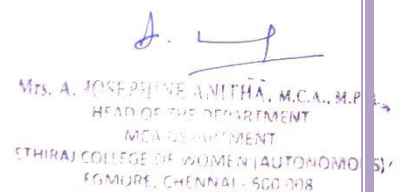 Mrs. A. JOSEPHINE ANITHA, M.C.A., M.P
HEAD OF THE DEPARTMENT
MCA DEPARTMENT
ETHIRAJ COLLEGE OF WOMEN (AUTONOMO S)
EGMORE, CHENNAI - 600 008